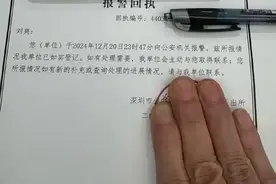 报警回执
刘奕:
您(单位)于2024年12月20日23时47分向公安机关报警,兹所报情
况我单位已如实登记。如有处理需要,我单位会主动与您取得联系;您
所报情况如有新的补充或查询处理的进展情况,请与我单位联系。
深圳市
出所
二